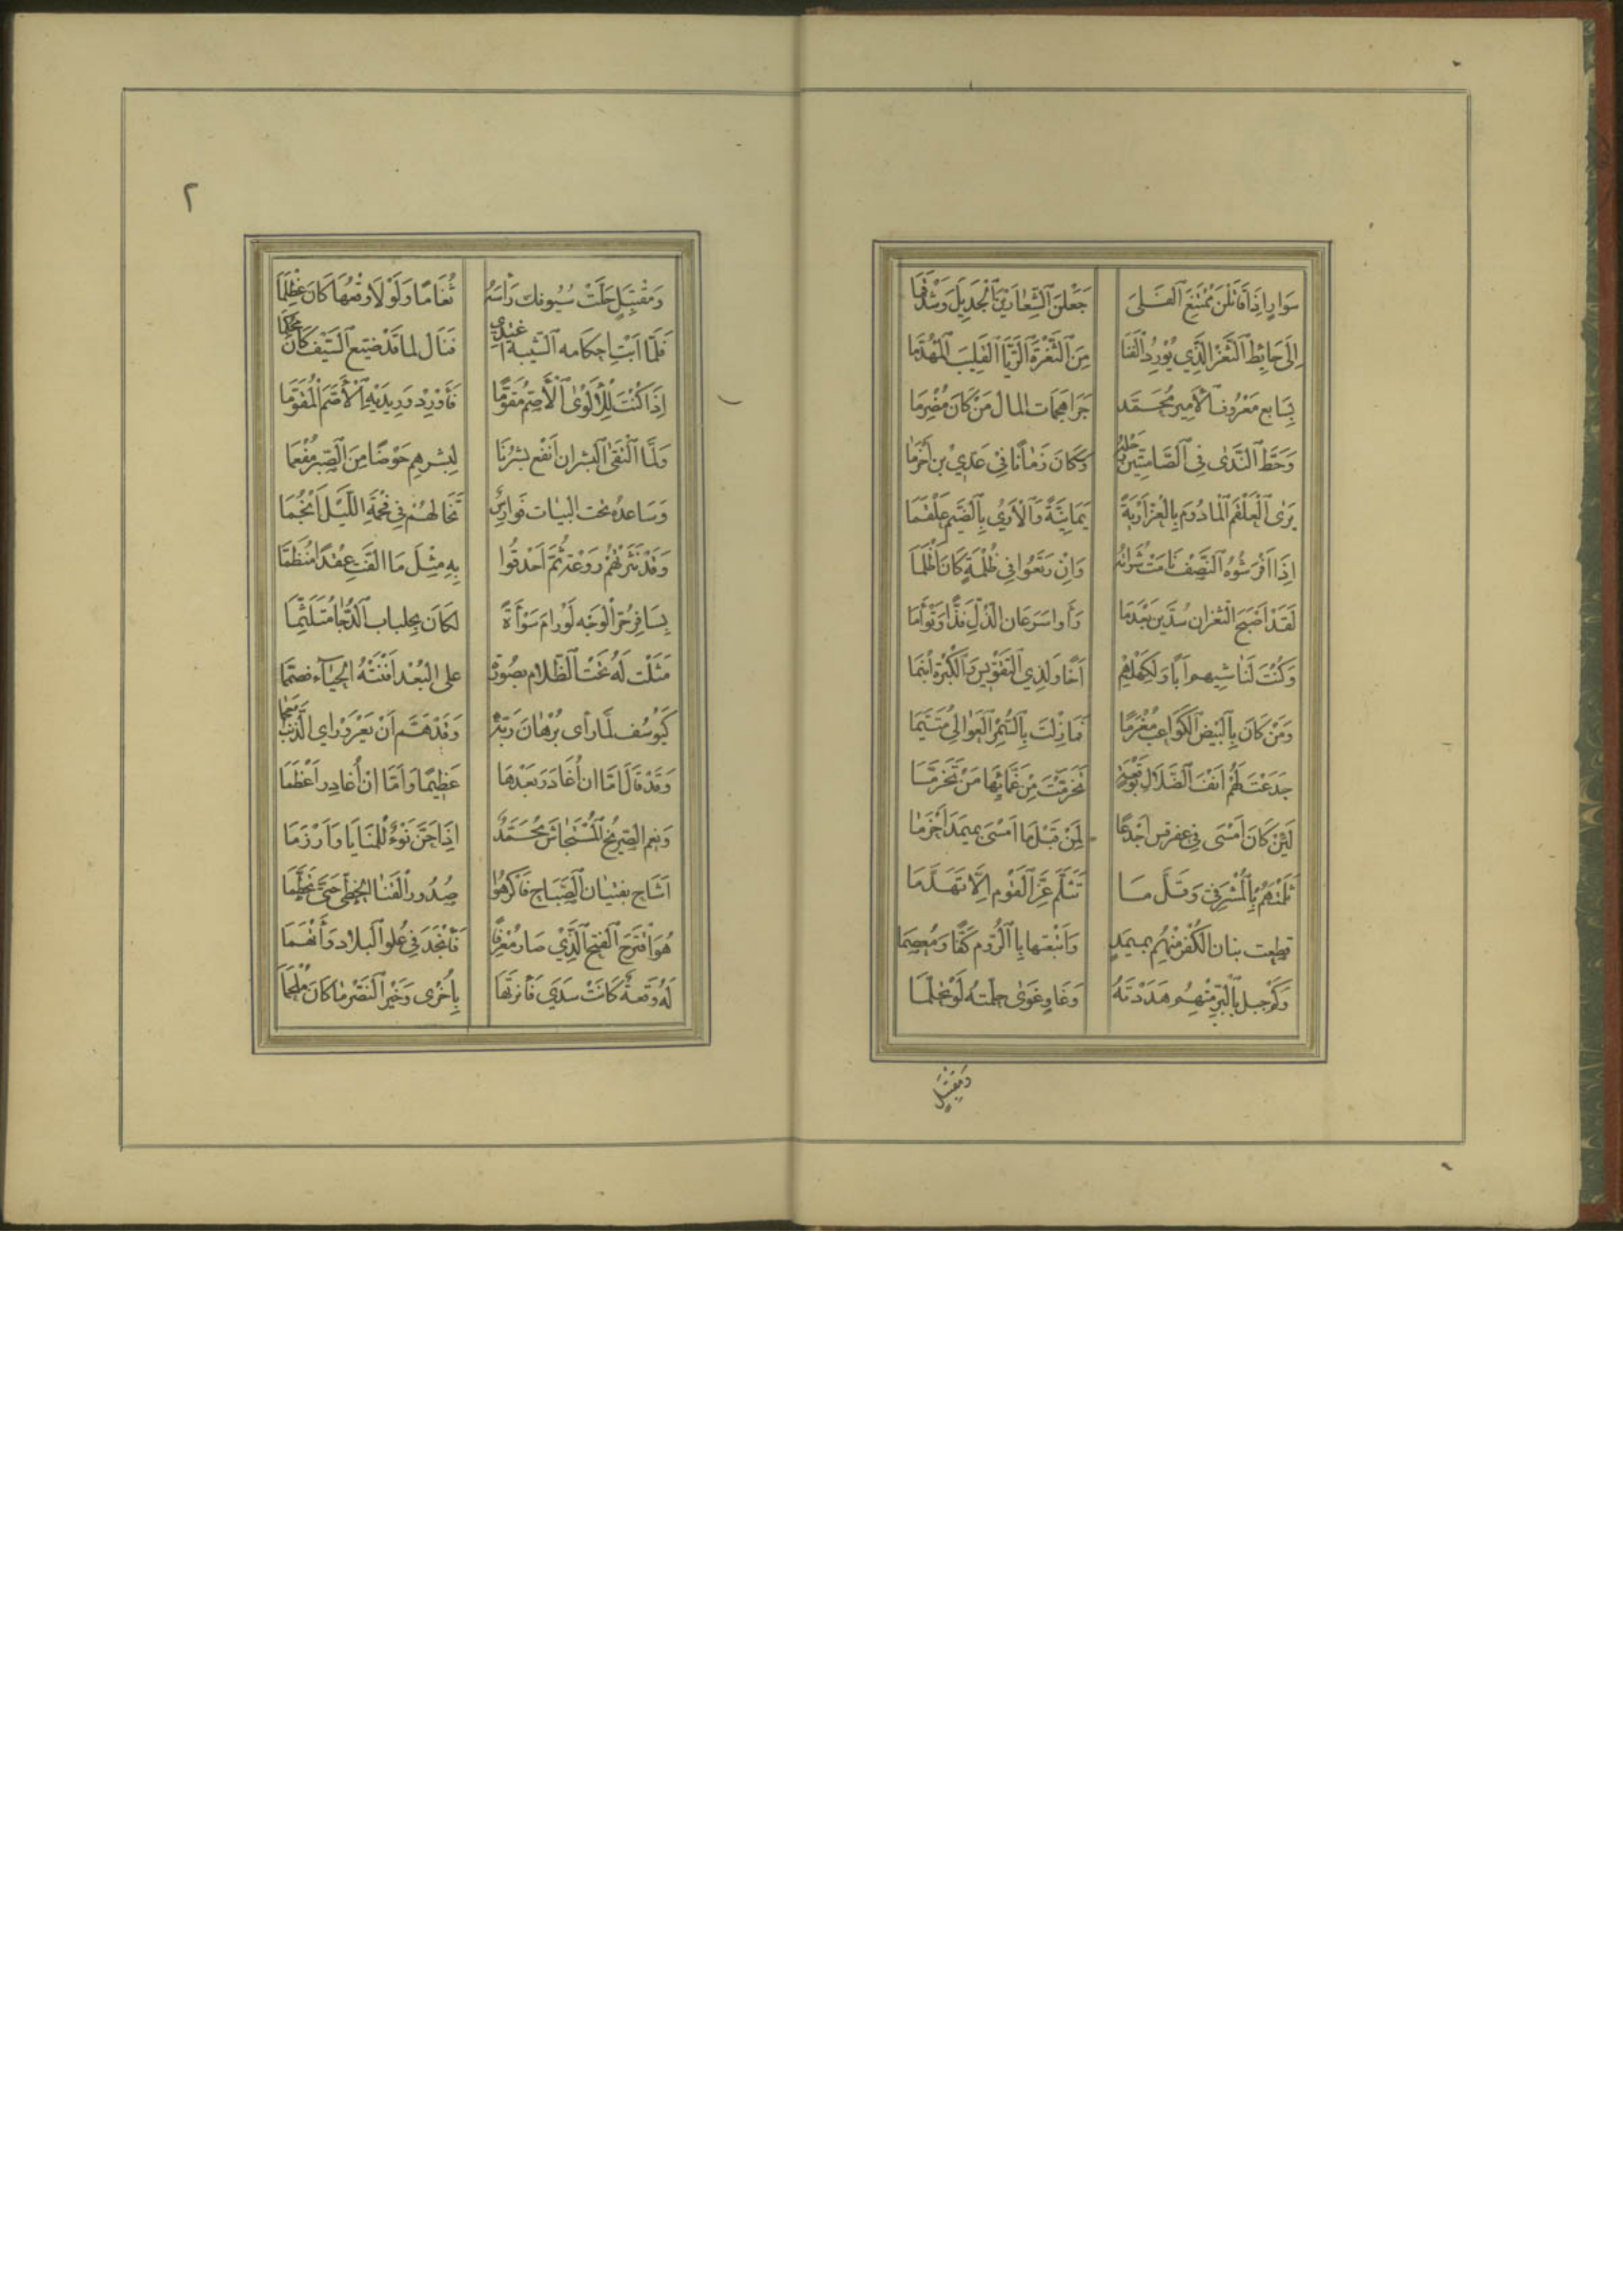 سَوَارٍ إِذَا قَاتَلْنَ مُمْتَنِعَ ٱلْفَلَى جَعَلْنَ ٱلشِّعَارَيْنِ ٱلْجَدِيلَ وَشَدْقَمَا
إِلَى حَائِطِ ٱلثَّغْرِ الَّذِي يُورِدُ ٱلْقَنَا مِنَ ٱلثُّغْرَةِ ٱلرَّيَّا ٱلْقَلِيبَ ٱلْمُهَدَّمَا
بِسَابِعِ مَعْرُوفِ ٱلْأَمِيرِ مُحَمَّدٍ حَدَا هَجَمَاتِ المالِ مَنْ كَانَ مُصْرِمَا
وَحَطَّ ٱلنَّدَى فِي ٱلصَّامِتِيِّينَ رَحْلَهُ وَكَانَ زَمَانًا فِي عَدِيِّ بْنِ أَخْزَمَا
يَرَى ٱلْعَلْقَمَ ٱلْمَأْدُومَ بِالْعِزِّ أَرْيَةً يَمَانِيَّةً وَٱلْأَرْيَ بِٱلضَّيْمِ عَلْقَمَا
إِذَا أَفْرَشُوهُ ٱلنِّصْفَ نَامَتْ شَذَاتُهُ وَإِنْ رَتَعُوا فِي ظُلْمِهِ كَانَ أَظْلَمَا
لَقَدْ أَصْبَحَ ٱلثَّغْرَانِ سُدَّيْنِ بَعْدَمَا رَأَوْا سَرَعَانَ الذُّلِّ فَذًّا وَتَوْأَمَا
وَكُنْتَ لِنَاشِيهِمْ أَبًا وَلِكَهْلِهِمْ أَخًا وَلِذِي ٱلتَّقْوِيسِ وَٱلْكَبْرَةِ ٱبْنَمَا
وَمَنْ كَانَ بِٱلْبِيضِ ٱلْكَوَاعِبِ مُغْرَمًا فَمَا زِلْتَ بِٱلسُّمْرِ ٱلْعَوَالِي مُتَيَّمَا
جَدَعْتَ لَهُمْ أَنْفَ ٱلضَّلَالِ بِوَقْعَةٍ تَخَرَّمْتَ مِنْ غَمَّائِهَا مَنْ تَخَرَّمَا
لَئِنْ كَانَ أَمْسَى فِي عَقَرْقُسَ أَجْدَعَا لَمِنْ قَبْلِهَا أَمْسَى بِمَيْمَذَ أَخْرَمَا
ثَلَمْتَهُمُ بِٱلْمَشْرَفِيِّ وَقَلَّ مَا تَثَلَّمَ عِزُّ ٱلْقَوْمِ إِلَّا تَهَدَّمَا
قطعت بنان الكُفْرِ مِنْهُم بِمَيْمَذٍ وَأَتْبَعْتَهَا بِالرُّومِ كَفًّا وَمِعْصَمَا
وَكَمْ جبلٍ بِٱلْبَذِّ مِنْهُم هَدَدْتَهُ وَغَاوٍ غَوَى حلّمتَهُ لَوْ تَحَلَّمَا
وَمُقْتَبَلٍ
٢
وَمُقْتَبَلٍ حَلَّتْ سُيُوفُكَ رَأْسَهُ ثَغَامًا وَلَوْلَا وَقْعُهَا كَانَ عِظْلِمَا
فَلَمَّا أَبَتْ إِحكامه ٱلشِّيبةُ اغْتَدَى فَنَالَ لما قَدْ ضيّع ٱلسَّيْفُ كَانَ مُحْكِمَا
إِذَا كُنْتَ لِلْأَلْوَى ٱلْأَصَمِّ مُقَوِّمًا فَأَوْرِدْ وَرِيدَيْهِ ٱلْأَصَمَّ ٱلْمُقَوَّمَا
وَلَمَّا ٱلْتَقَى ٱلْبِشْرَانِ أَنْقَعَ بِشْرُنَا لِبِشْرِهِمِ حَوْضًا مِنَ ٱلصَّبْرِ مُفْعَمَا
وَسَاعَدَهُ تحت البَيَات فَوَارِسٌ تَخَالُهُمُ فِي فَحْمَةِ اللَّيْلِ أَنْجُمَا
وَقَدْ نَثَرَتْهُمْ رَوْعَةٌ ثُمَّ أَحْدَقُوا بِهِ مِثْلَ مَا الَّفْتَ عِقْدًا مُنَظَّمَا
بِسَافِرِ حُرِّ ٱلْوَجْهِ لَوْ رَامَ سَوْأَةً لَكَانَ بِجِلبابِ ٱلدُّجَا مُتَلَثِّمَا
مَثَلْتَ لَهُ تَحْتَ ٱلظَّلَامِ بِصُورَةٍ على البُعْدِ أَفْنَتْهُ الحَيَاءَ فصمَّمَا
كَيُوسُفَ لَمَّا رَأَى بُرْهَانَ رَبِّهِ وَقَدْ هَمَّ أَنْ يَعْرَوْرِيَ ٱلذَّنْبَ أَحْجَمَا
وَقَدْ قَالَ إِمَّا ان أُغَادَرَ بَعْدَهَا عَظِيمًا وَإِمَّا انْ أُغَادِرَ أَعْظُمَا
وَنِعْمَ الصَّرِيخُ ٱلْمُسْتَجَاشُ مُحَمَّدٌ إِذَا حَنَّ نَوْءٌ لِلْمَنَايَا وَأَرْزَمَا
أَشَاحَ بِفِتيانِ ٱلصَّبَاحِ فَأَكْرَهُوا صُدُورَ ٱلْقَنَا الخَطِّيِّ حَتَّى تَحَطَّمَا
هُوَ ٱفْتَرَعَ ٱلْفَتْحَ ٱلَّذِي صَارَ مُعْرِقًا فَأَنْجَدَ فِي عُلْوِ ٱلْبِلَادِ وَأَتْهَمَا
لَهُ وَقْعَةٌ كَانَتْ سَدَى فَأَنَرْتَهَا بِأُخْرَى وَخَيْرُ ٱلنَّصْرِ مَا كَانَ مُلْحَمَا